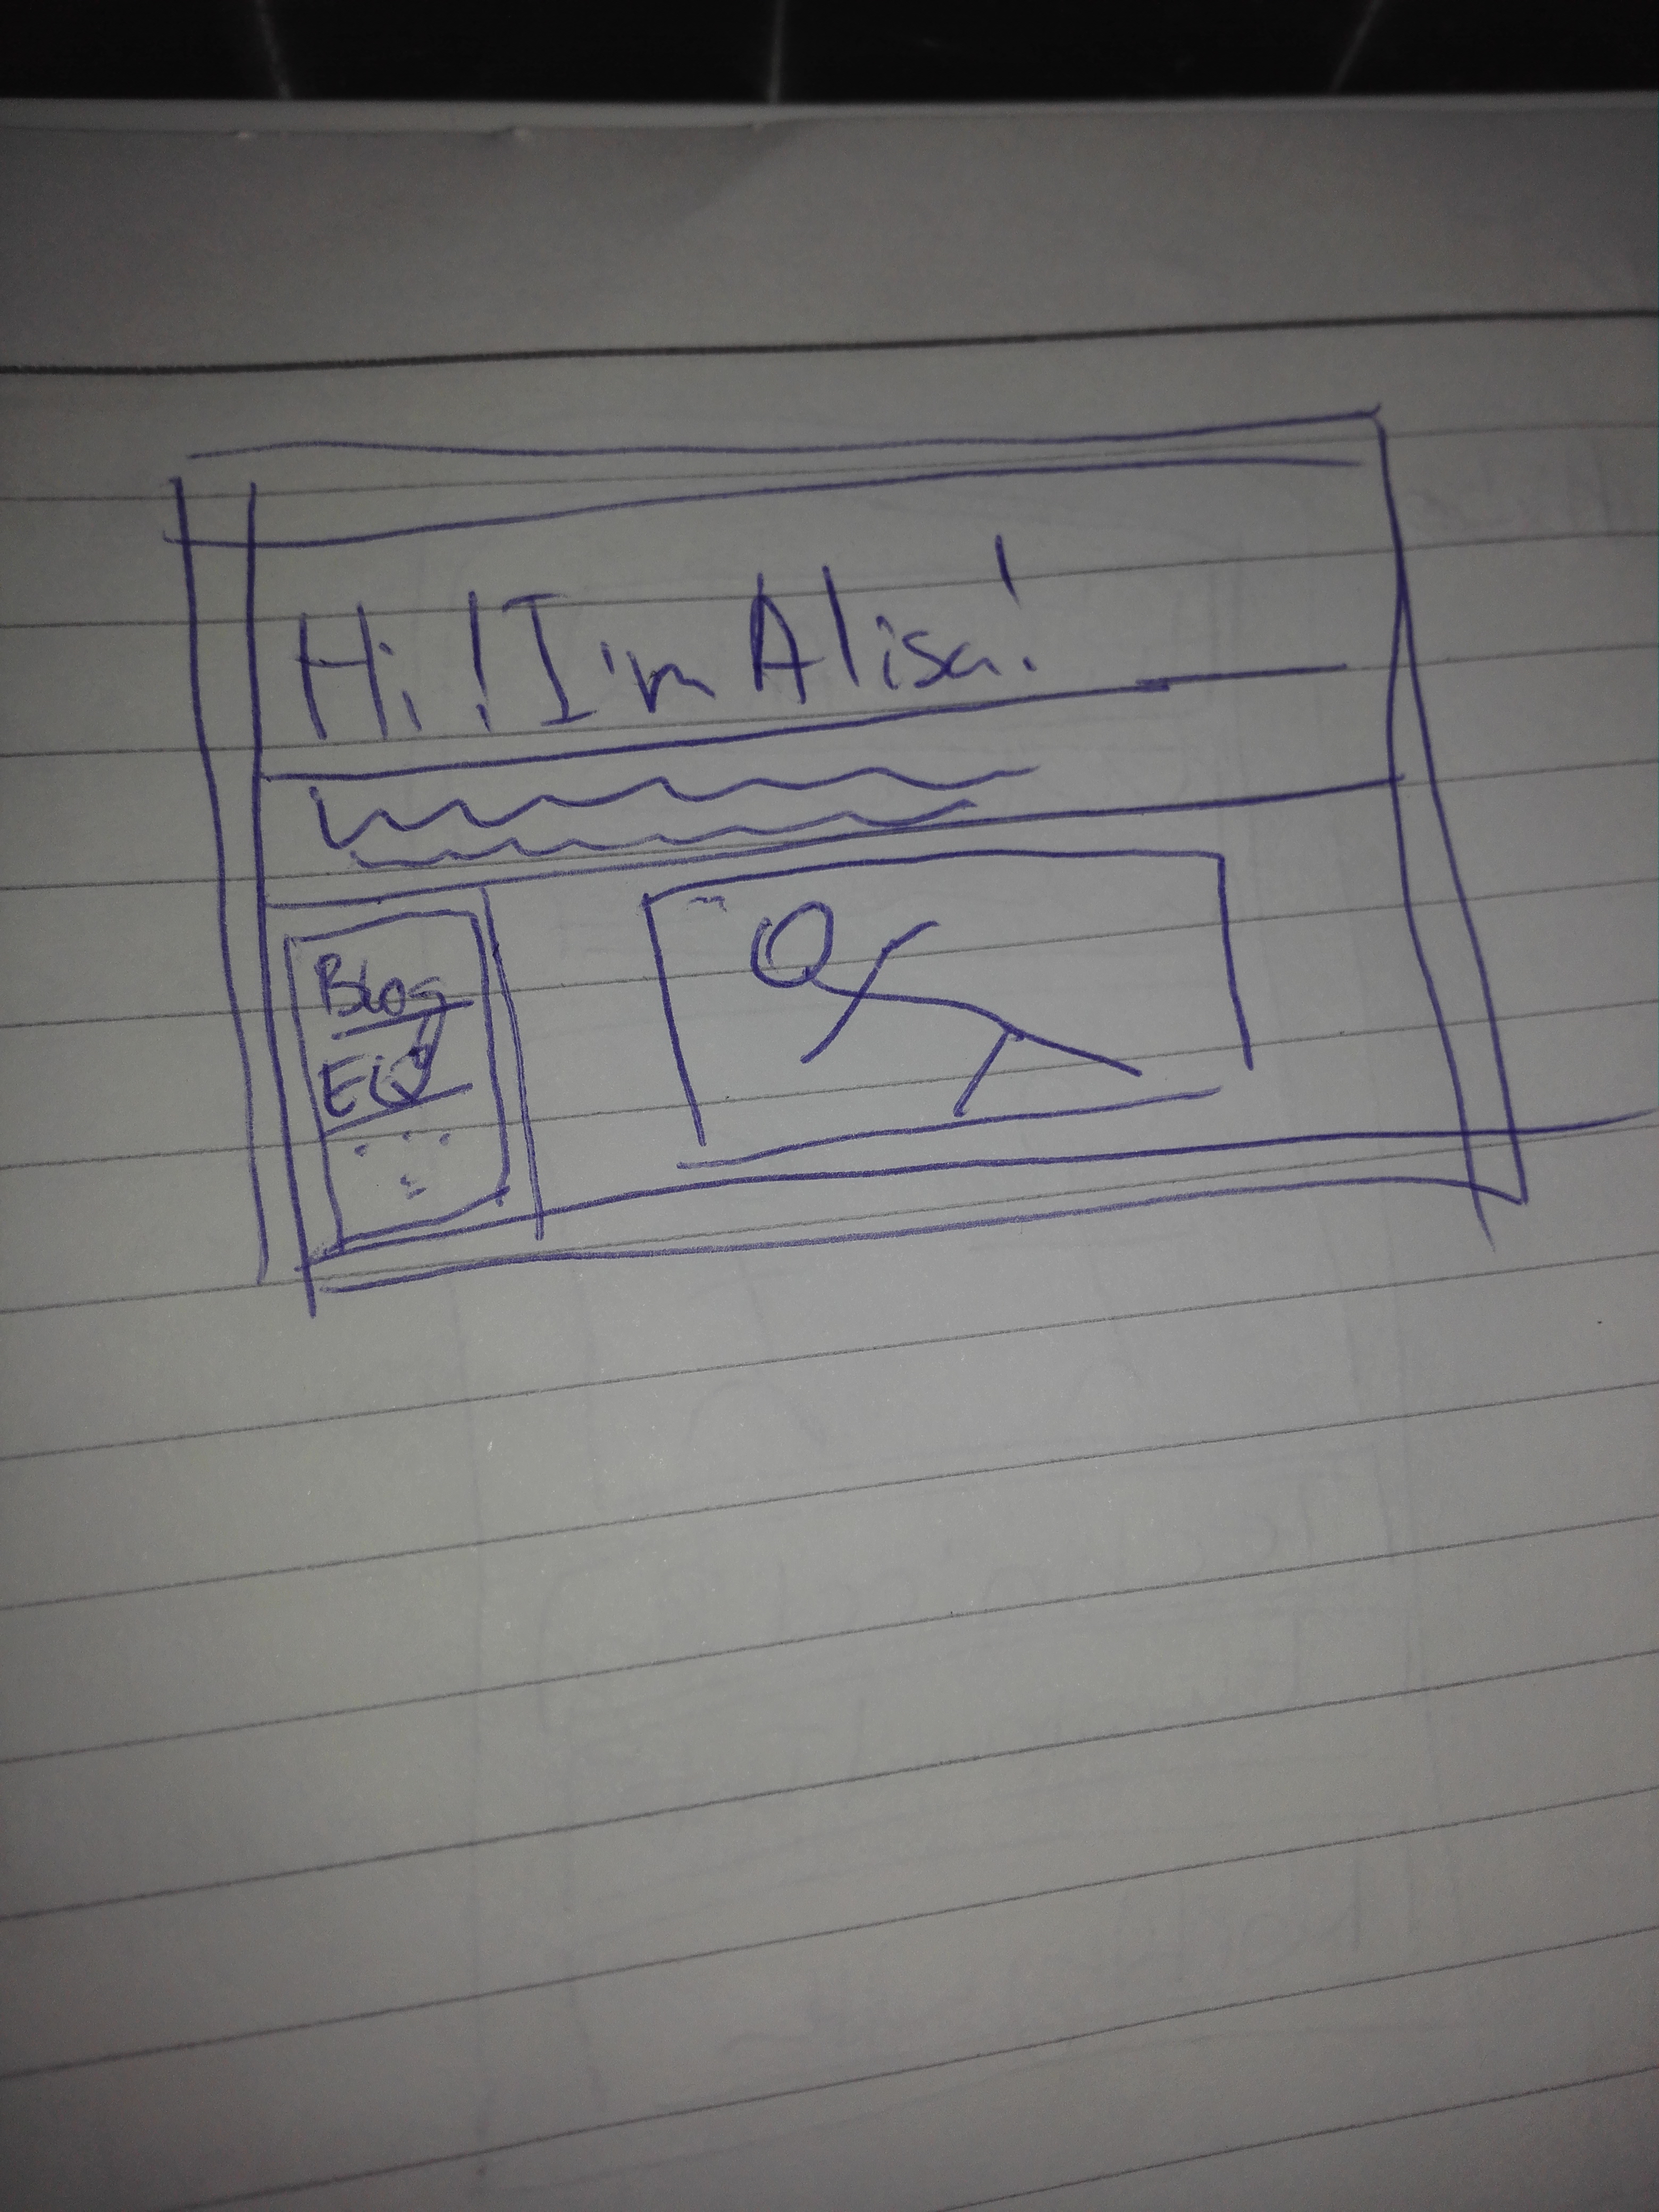 Hi! I'm Alisa!
Blog